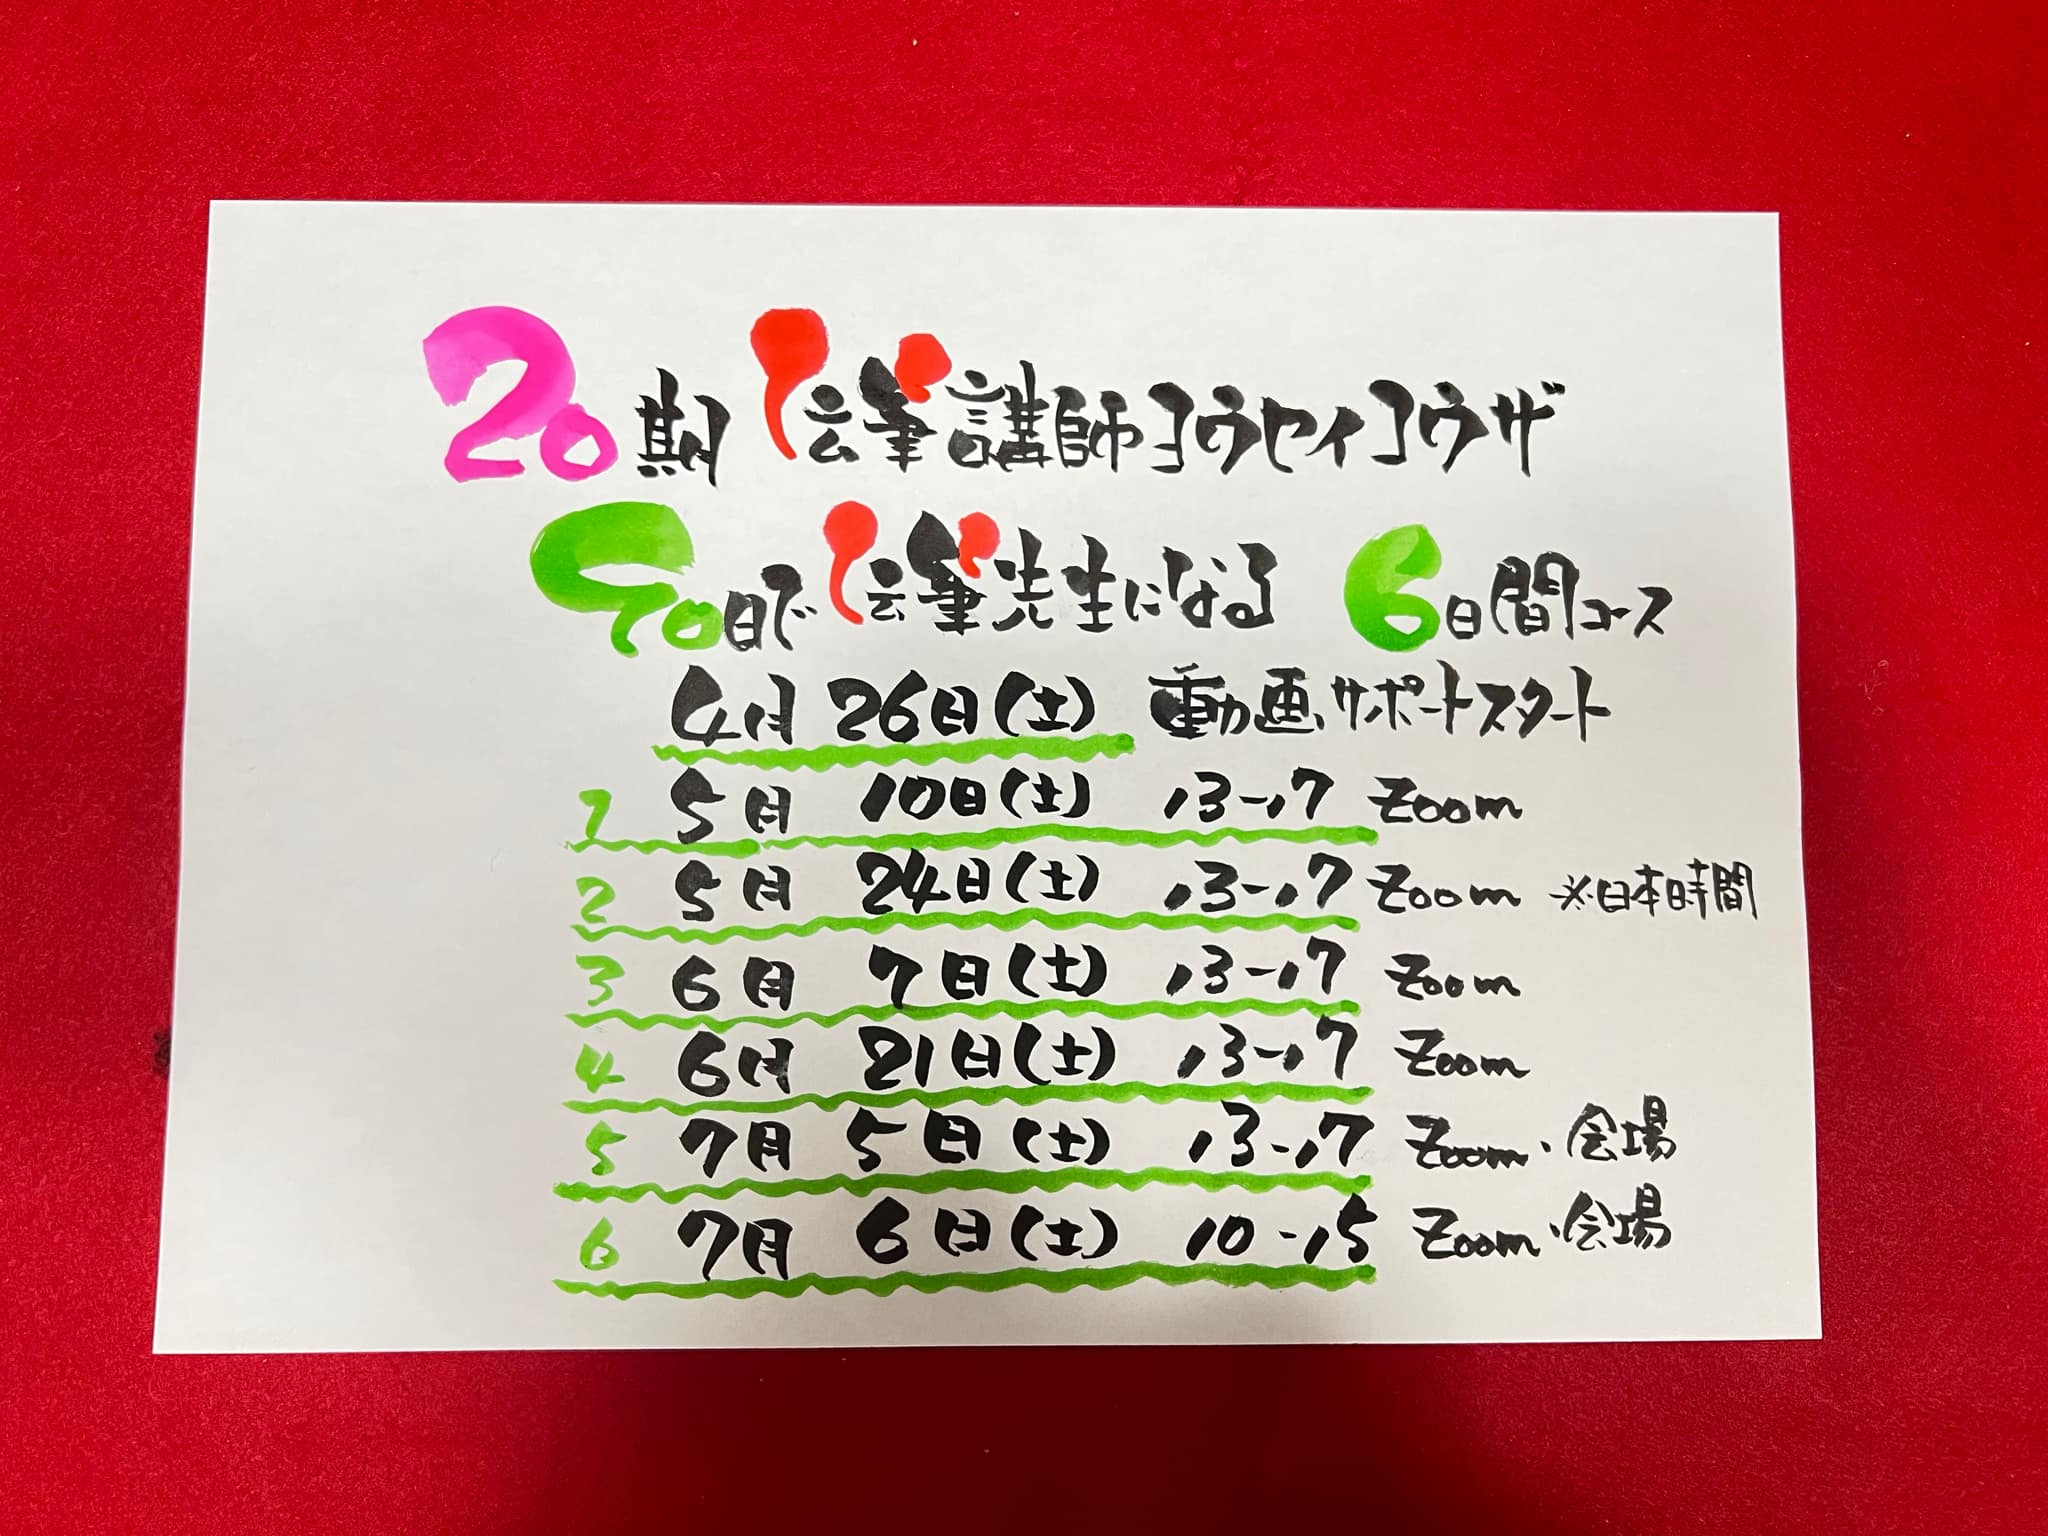 20期 伝筆講師ヨウセイコウザ
90日で伝筆先生になる 6日間コース
4月 26日(土) 動画サポートスタート
1 5月 10日(土) 13-17 Zoom
2 5月 24日(土) 13-17 Zoom ※日本時間
3 6月 7日(土) 13-17 Zoom
4 6月 21日(土) 13-17 Zoom
5 7月 5日(土) 13-17 Zoom・会場
6 7月 6日(土) 10-15 Zoom・会場